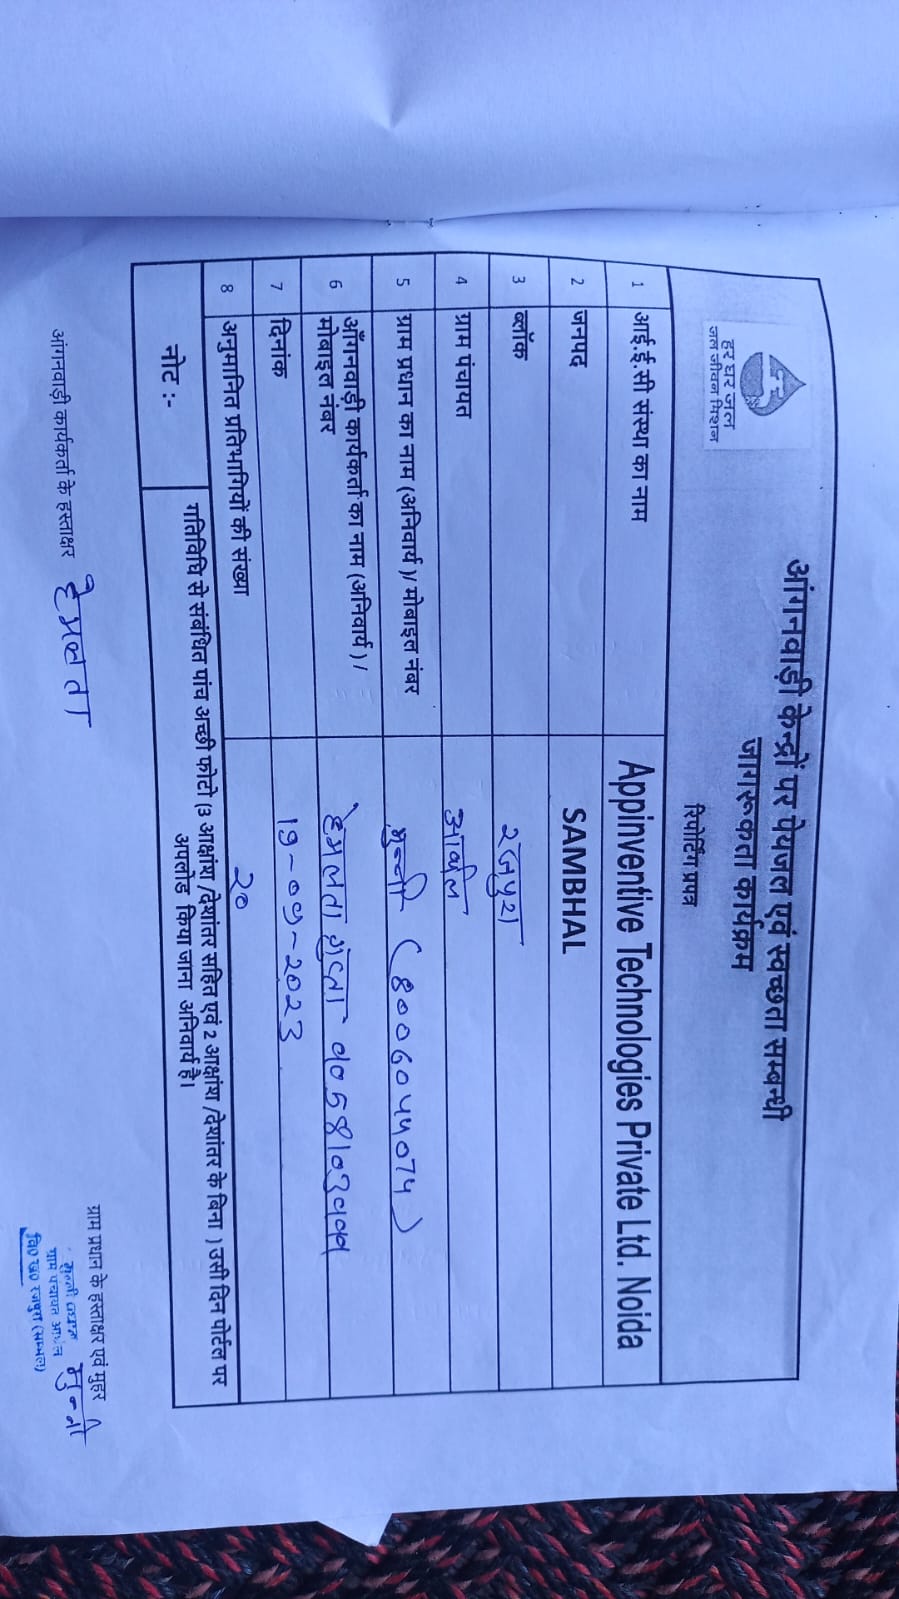 हर घर जल
जल जीवन मिशन
आंगनवाड़ी केन्द्रों पर पेयजल एवं स्वच्छता सम्बन्धी
जागरूकता कार्यक्रम
रिपोर्टिंग प्रपत्र
1 आई.ई.सी संस्था का नाम Appinventive Technologies Private Ltd. Noida
2 जनपद SAMBHAL
3 ब्लॉक रजपुरा
4 ग्राम पंचायत
5 ग्राम प्रधान का नाम (अनिवार्य )/ मोबाइल नंबर मुन्नी (8006044074)
6 आँगनवाड़ी कार्यकर्ता का नाम (अनिवार्य ) / मोबाइल नंबर हेमलता गुप्ता
7 दिनांक
8 अनुमानित प्रतिभागियों की संख्या २०
नोट :- गतिविधि से संबंधित पांच अच्छी फोटो (3 आक्षांश /देशांतर सहित एवं 2 आक्षांश /देशांतर के बिना ) उसी दिन पोर्टल पर
अपलोड किया जाना अनिवार्य है।
आंगनवाड़ी कार्यकर्ता के हस्ताक्षर हेमलता
ग्राम प्रधान के हस्ताक्षर एवं मुहर
मुन्नी
ग्राम पंचायत
वि० ख० रजपुरा (सम्भल)